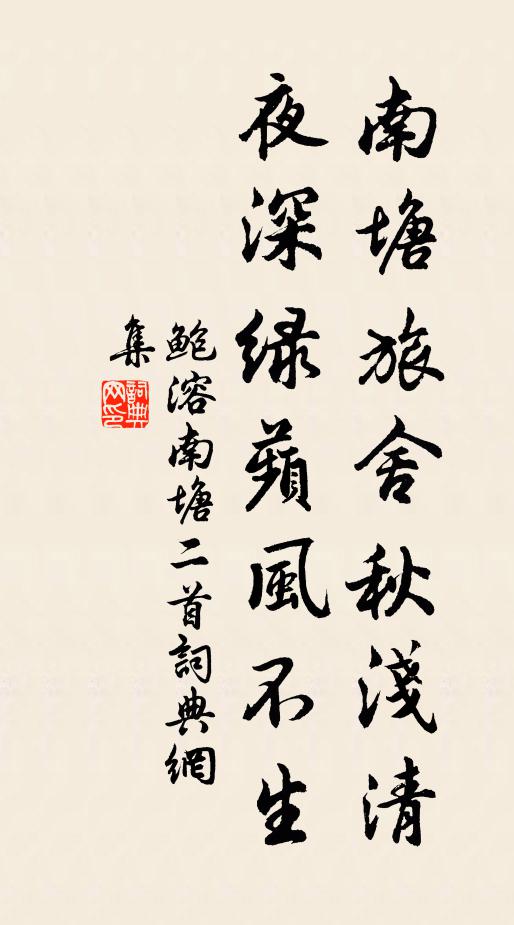 南塘旅舍秋淺清
夜深緑蘋風不生
鲍溶南塘二首詞典網
集
詞典网印